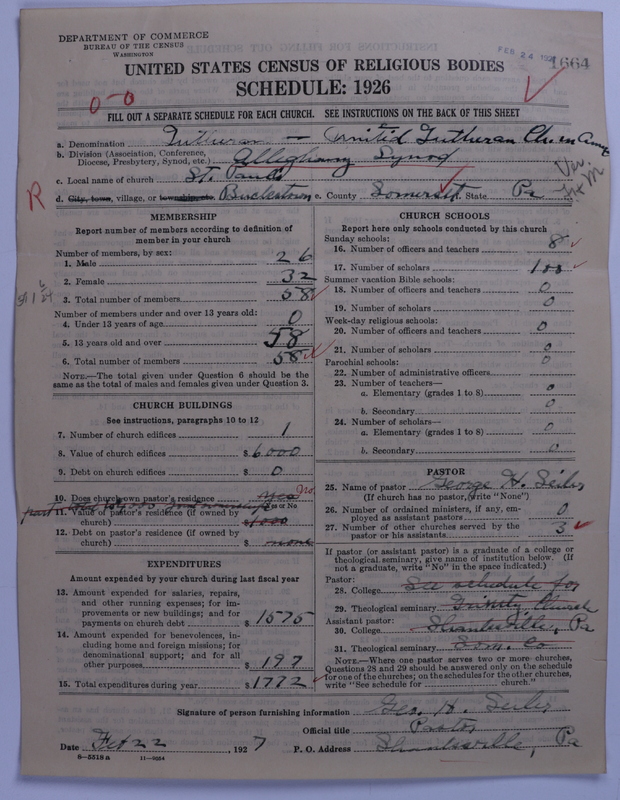 DEPARTMENT OF COMMERCE
BUREAU OF THE CENSUS
WASHINGTON
FEB 24
1664
UNITED STATES CENSUS OF RELIGIOUS BODIES
SCHEDULE: 1926
0-0
FILL OUT A SEPARATE SCHEDULE FOR EACH CHURCH. SEE INSTRUCTIONS ON THE BACK OF THIS SHEET
a. Denomination Lutheran — United Lutheran Ch. in Amer
b. Division (Association, Conference, Diocese, Presbytery, Synod, etc.) Alleghany Synod
c. Local name of church St. Pauls
d. City, town, village, or township etc. Buckstown e. County Somerset State Pa
R
MEMBERSHIP
Report number of members according to definition of
member in your church
Number of members, by sex:
1. Male 26
2. Female 32
3. Total number of members 58
Number of members under and over 13 years old:
4. Under 13 years of age 0
5. 13 years old and over 58
6. Total number of members 58
NOTE.—The total given under Question 6 should be the
same as the total of males and females given under Question 3.
CHURCH BUILDINGS
See instructions, paragraphs 10 to 12
7. Number of church edifices 1
8. Value of church edifices $6000
9. Debt on church edifices $ 0
10. Does church own pastor's residence Yes No
Yes or No
11. Value of pastor's residence (if owned by
church) $1000
12. Debt on pastor's residence (if owned by
church) $ none
EXPENDITURES
Amount expended by your church during last fiscal year
13. Amount expended for salaries, repairs,
and other running expenses; for im-
provements or new buildings; and for
payments on church debt $ 1575
14. Amount expended for benevolences, in-
cluding home and foreign missions; for
denominational support; and for all
other purposes $ 197
15. Total expenditures during year $1772
CHURCH SCHOOLS
Report here only schools conducted by this church
Sunday schools:
16. Number of officers and teachers 8
17. Number of scholars 100
Summer vacation Bible schools:
18. Number of officers and teachers 0
19. Number of scholars 0
Week-day religious schools:
20. Number of officers and teachers 0
21. Number of scholars 0
Parochial schools:
22. Number of administrative officers 0
23. Number of teachers—
a. Elementary (grades 1 to 8) 0
b. Secondary 0
24. Number of scholars—
a. Elementary (grades 1 to 8) 0
b. Secondary 0
PASTOR
25. Name of pastor George H. Seiler
(If church has no pastor, write "None")
26. Number of ordained ministers, if any, em-
ployed as assistant pastors 0
27. Number of other churches served by the
pastor or his assistants 3
If pastor (or assistant pastor) is a graduate of a college or
theological seminary, give name of institution below. (If
not a graduate, write "No" in the space indicated.)
Pastor:
28. College See schedule for
29. Theological seminary Trinity Church
Assistant pastor:
30. College Shanksville, Pa
31. Theological seminary Som. Co
NOTE.—Where one pastor serves two or more churches,
Questions 28 and 29 should be answered only on the schedule
for one of the churches; on the schedules for the other churches,
write "See schedule for church."
Signature of person furnishing information Geo. H. Seiler
Official title Pastor
Date Feb 22, 1927 P. O. Address Shanksville, Pa
8-5518 a 11-9054